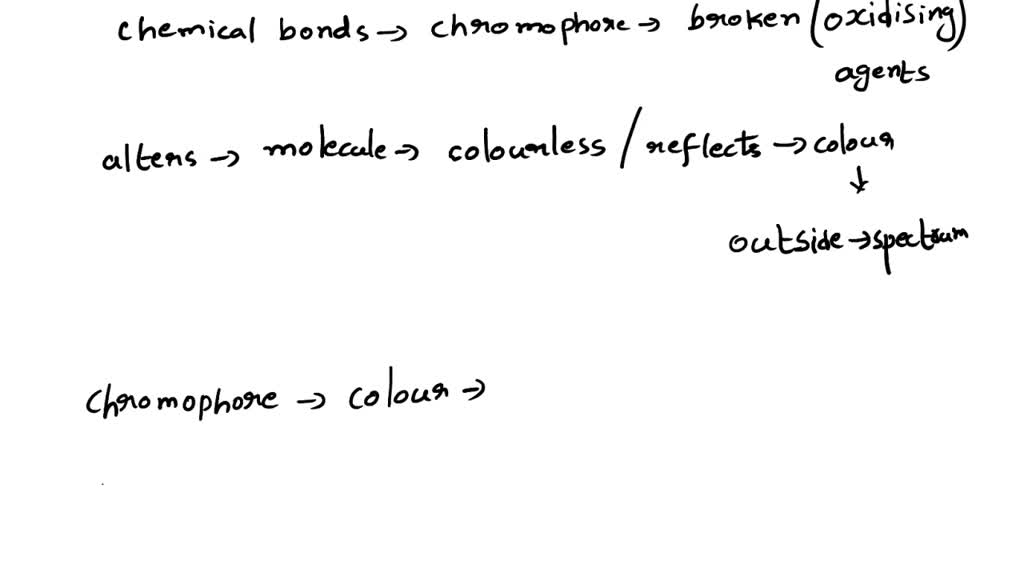 chemical bonds → chromophore → broken (oxidising)
agents
alters → molecule → colourless / reflects → colour
↓
outside → spectrum
chromophore → colour →